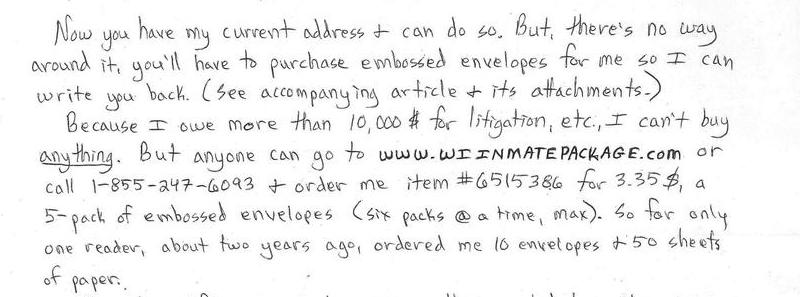 Now you have my current address + can do so. But, there's no way
around it, you'll have to purchase embossed envelopes for me so I can
write you back. (See accompanying article + its attachments.)
Because I owe more than 10,000 $ for litigation, etc., I can't buy
anything. But anyone can go to WWW.WIINMATEPACKAGE.com or
call 1-855-247-6093 + order me item #6515386 for 3.35$, a
5-pack of embossed envelopes (six packs @ a time, max). So far only
one reader, about two years ago, ordered me 16 envelopes + 50 sheets
of paper.